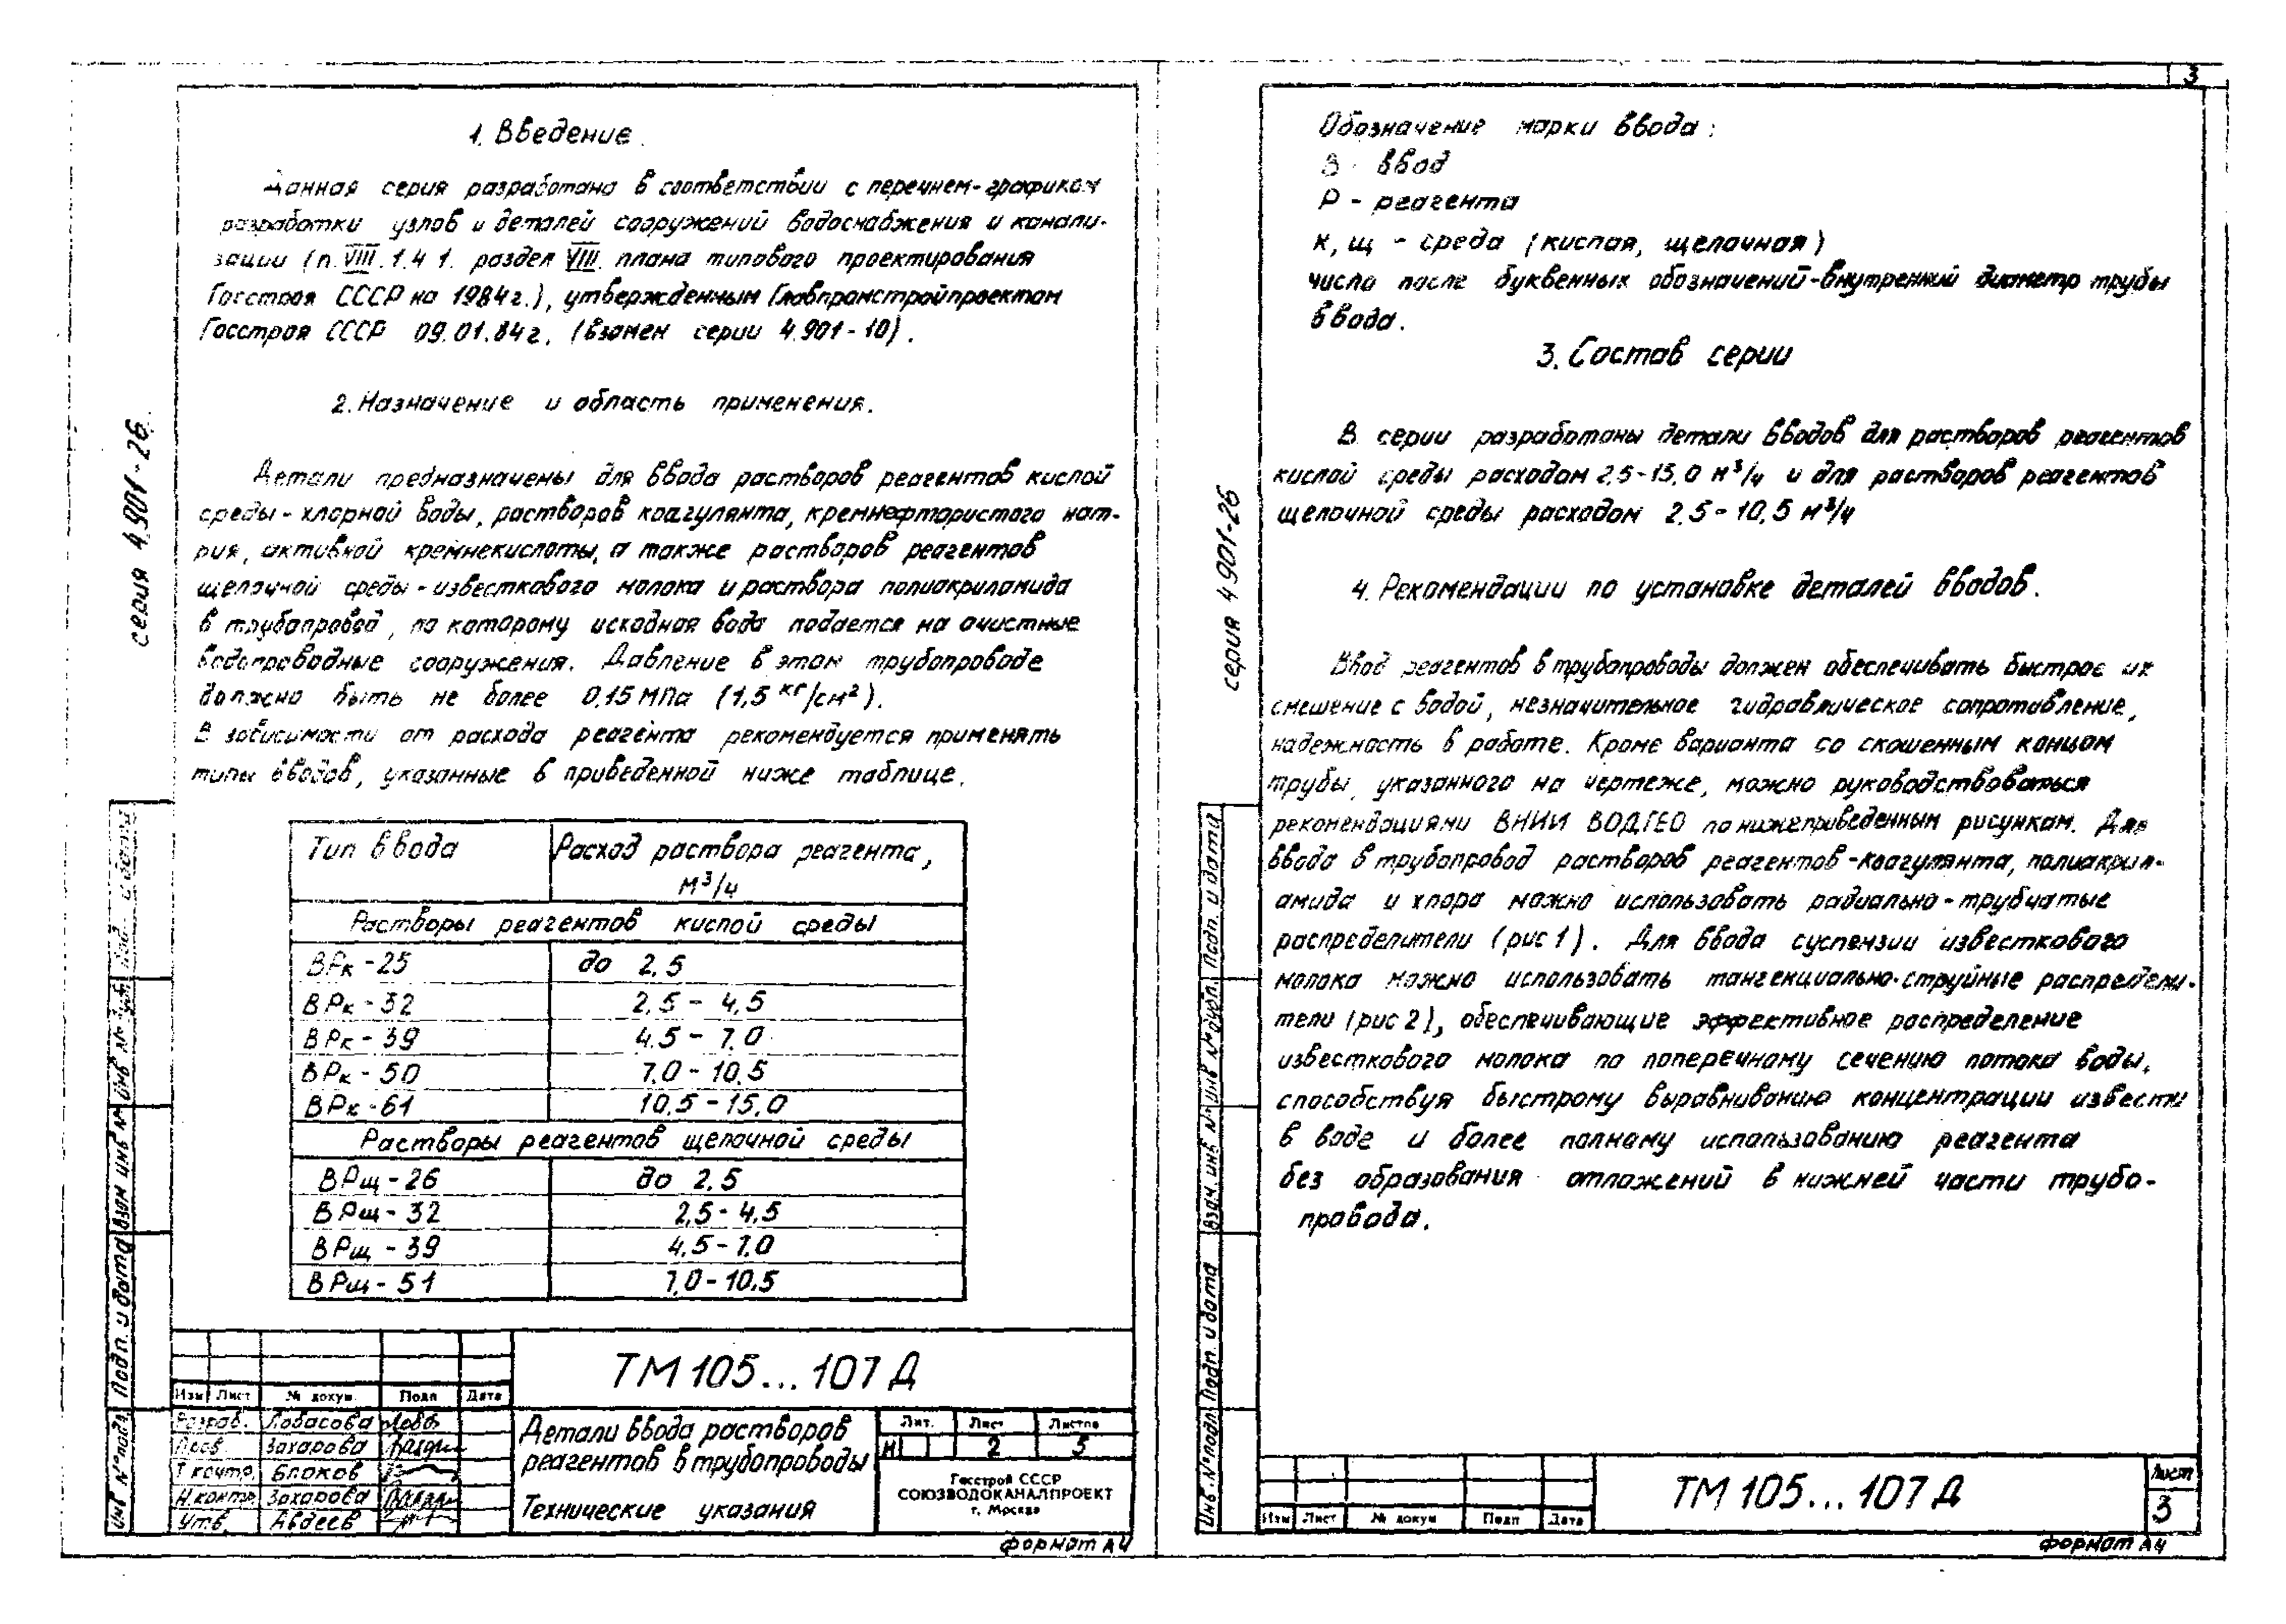 1. Введение.
Данная серия разработана в соответствии с перечнем-графиком
разработки узлов и деталей сооружений водоснабжения и канали-
зации (п. VIII. 1.4 1. раздел VIII. плана типового проектирования
Госстроя СССР на 1984г.), утвержденным Главпромстройпроектом
Госстроя СССР 09.01.84г. (взамен серии 4.901-10).
2. Назначение и область применения.
Детали предназначены для ввода растворов реагентов кислой
среды - хлорной воды, растворов коагулянта, кремнефтористого нат-
рия, активной кремнекислоты, а также растворов реагентов
щелочной среды - известкового молока и раствора полиакриламида
в трубопровод, по которому исходная вода подается на очистные
водопроводные сооружения. Давление в этом трубопроводе
должно быть не более 0,15 МПа (1,5 кг/см²).
В зависимости от расхода реагента рекомендуется применять
типы вводов, указанные в приведенной ниже таблице.
Тип ввода Расход раствора реагента,
м³/ч
Растворы реагентов кислой среды
ВРк-25 до 2,5
ВРк-32 2,5 - 4,5
ВРк-39 4,5 - 7,0
ВРк-50 7,0 - 10,5
ВРк-61 10,5 - 15,0
Растворы реагентов щелочной среды
ВРщ-26 до 2,5
ВРщ-32 2,5 - 4,5
ВРщ-39 4,5 - 7,0
ВРщ-51 7,0 - 10,5
серия 4.901-26.
Подп. и дата
Инв № дубл
Взам инв №
Подп. и дата
Инв № подл
ТМ 105...107 Д
Изм Лист № докум. Подп Дата
Разраб. Лобасова
Пров. Захарова
Т контр. Блоков
Н.контр. Захарова
Утв. Авдеев
Детали ввода растворов
реагентов в трубопроводы
Технические указания
Лит. Лист Листов
И 2 5
Госстрой СССР
СОЮЗВОДОКАНАЛПРОЕКТ
г. Москва
формат А4
3
Обозначение марки ввода:
В - ввод
Р - реагента
К, щ - среда (кислая, щелочная)
число после буквенных обозначений-внутренний диаметр трубы
ввода.
3. Состав серии
В серии разработаны детали вводов для растворов реагентов
кислой среды расходом 2,5-15,0 м³/ч и для растворов реагентов
щелочной среды расходом 2,5-10,5 м³/ч
4. Рекомендации по установке деталей вводов.
Ввод реагентов в трубопроводы должен обеспечивать быстрое их
смешение с водой, незначительное гидравлическое сопротивление,
надежность в работе. Кроме варианта со скошенным концом
трубы, указанного на чертеже, можно руководствоваться
рекомендациями ВНИИ ВОДГЕО по нижеприведенным рисункам. Для
ввода в трубопровод растворов реагентов-коагулянта, полиакрил-
амида и хлора можно использовать радиально-трубчатые
распределители (рис 1). Для ввода суспензии известкового
молока можно использовать тангенциально-струйные распредели-
тели (рис 2), обеспечивающие эффективное распределение
известкового молока по поперечному сечению потока воды,
способствуя быстрому выравниванию концентрации извести
в воде и более полному использованию реагента
без образования отложений в нижней части трубо-
провода.
серия 4.901-26
Подп. и дата
Инв № дубл.
Взам. инв №
Подп. и дата
Инв. № подл
Изм Лист № докум Подп Дата
ТМ 105...107 Д
Лист
3
формат А4